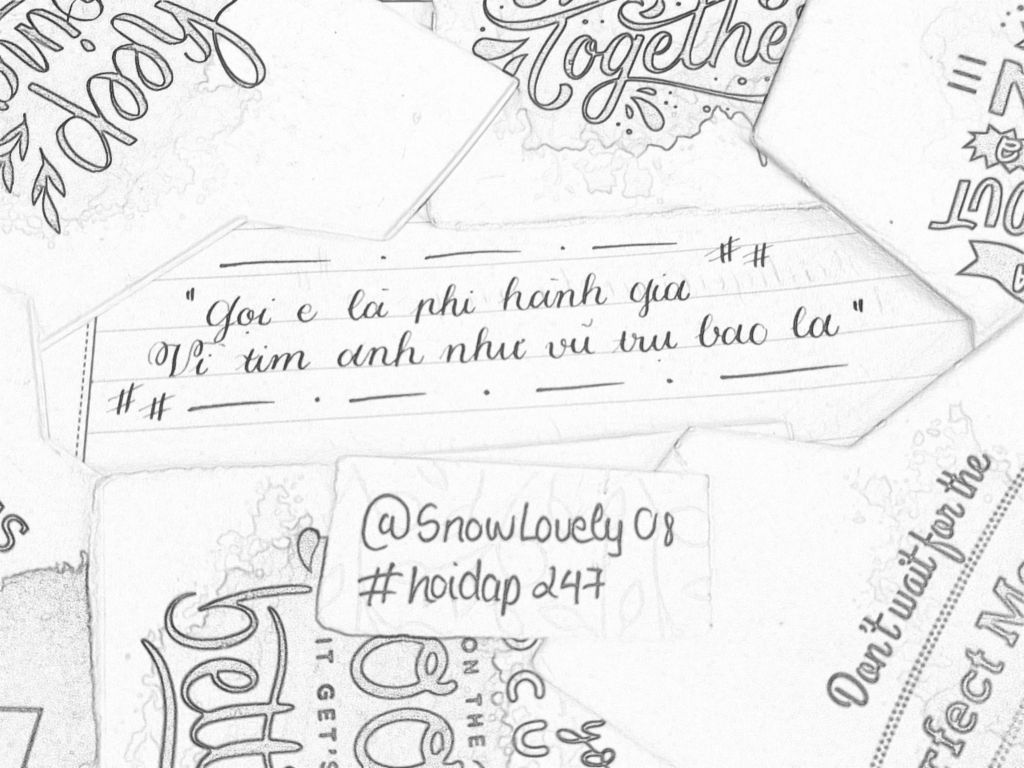 Togethe
OUT
##
"Gọi e là phi hành gia
Vì tim anh như vũ trụ bao la"
##
@SnowLovely08
#hoidap247
Don't wait for the
rfect Mo
bett
IT GET'S
GO
ON THE